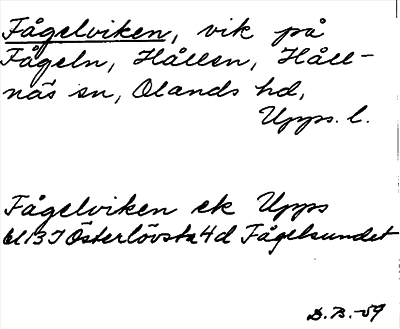 Fågelviken, vik på
Fågeln, Hållen, Håll-
näs sn, Olands hd,
Upps. l.
Fågelviken ek Upps
bl 13 I Österlövsta 4d Fågelsundet
D.B. -59